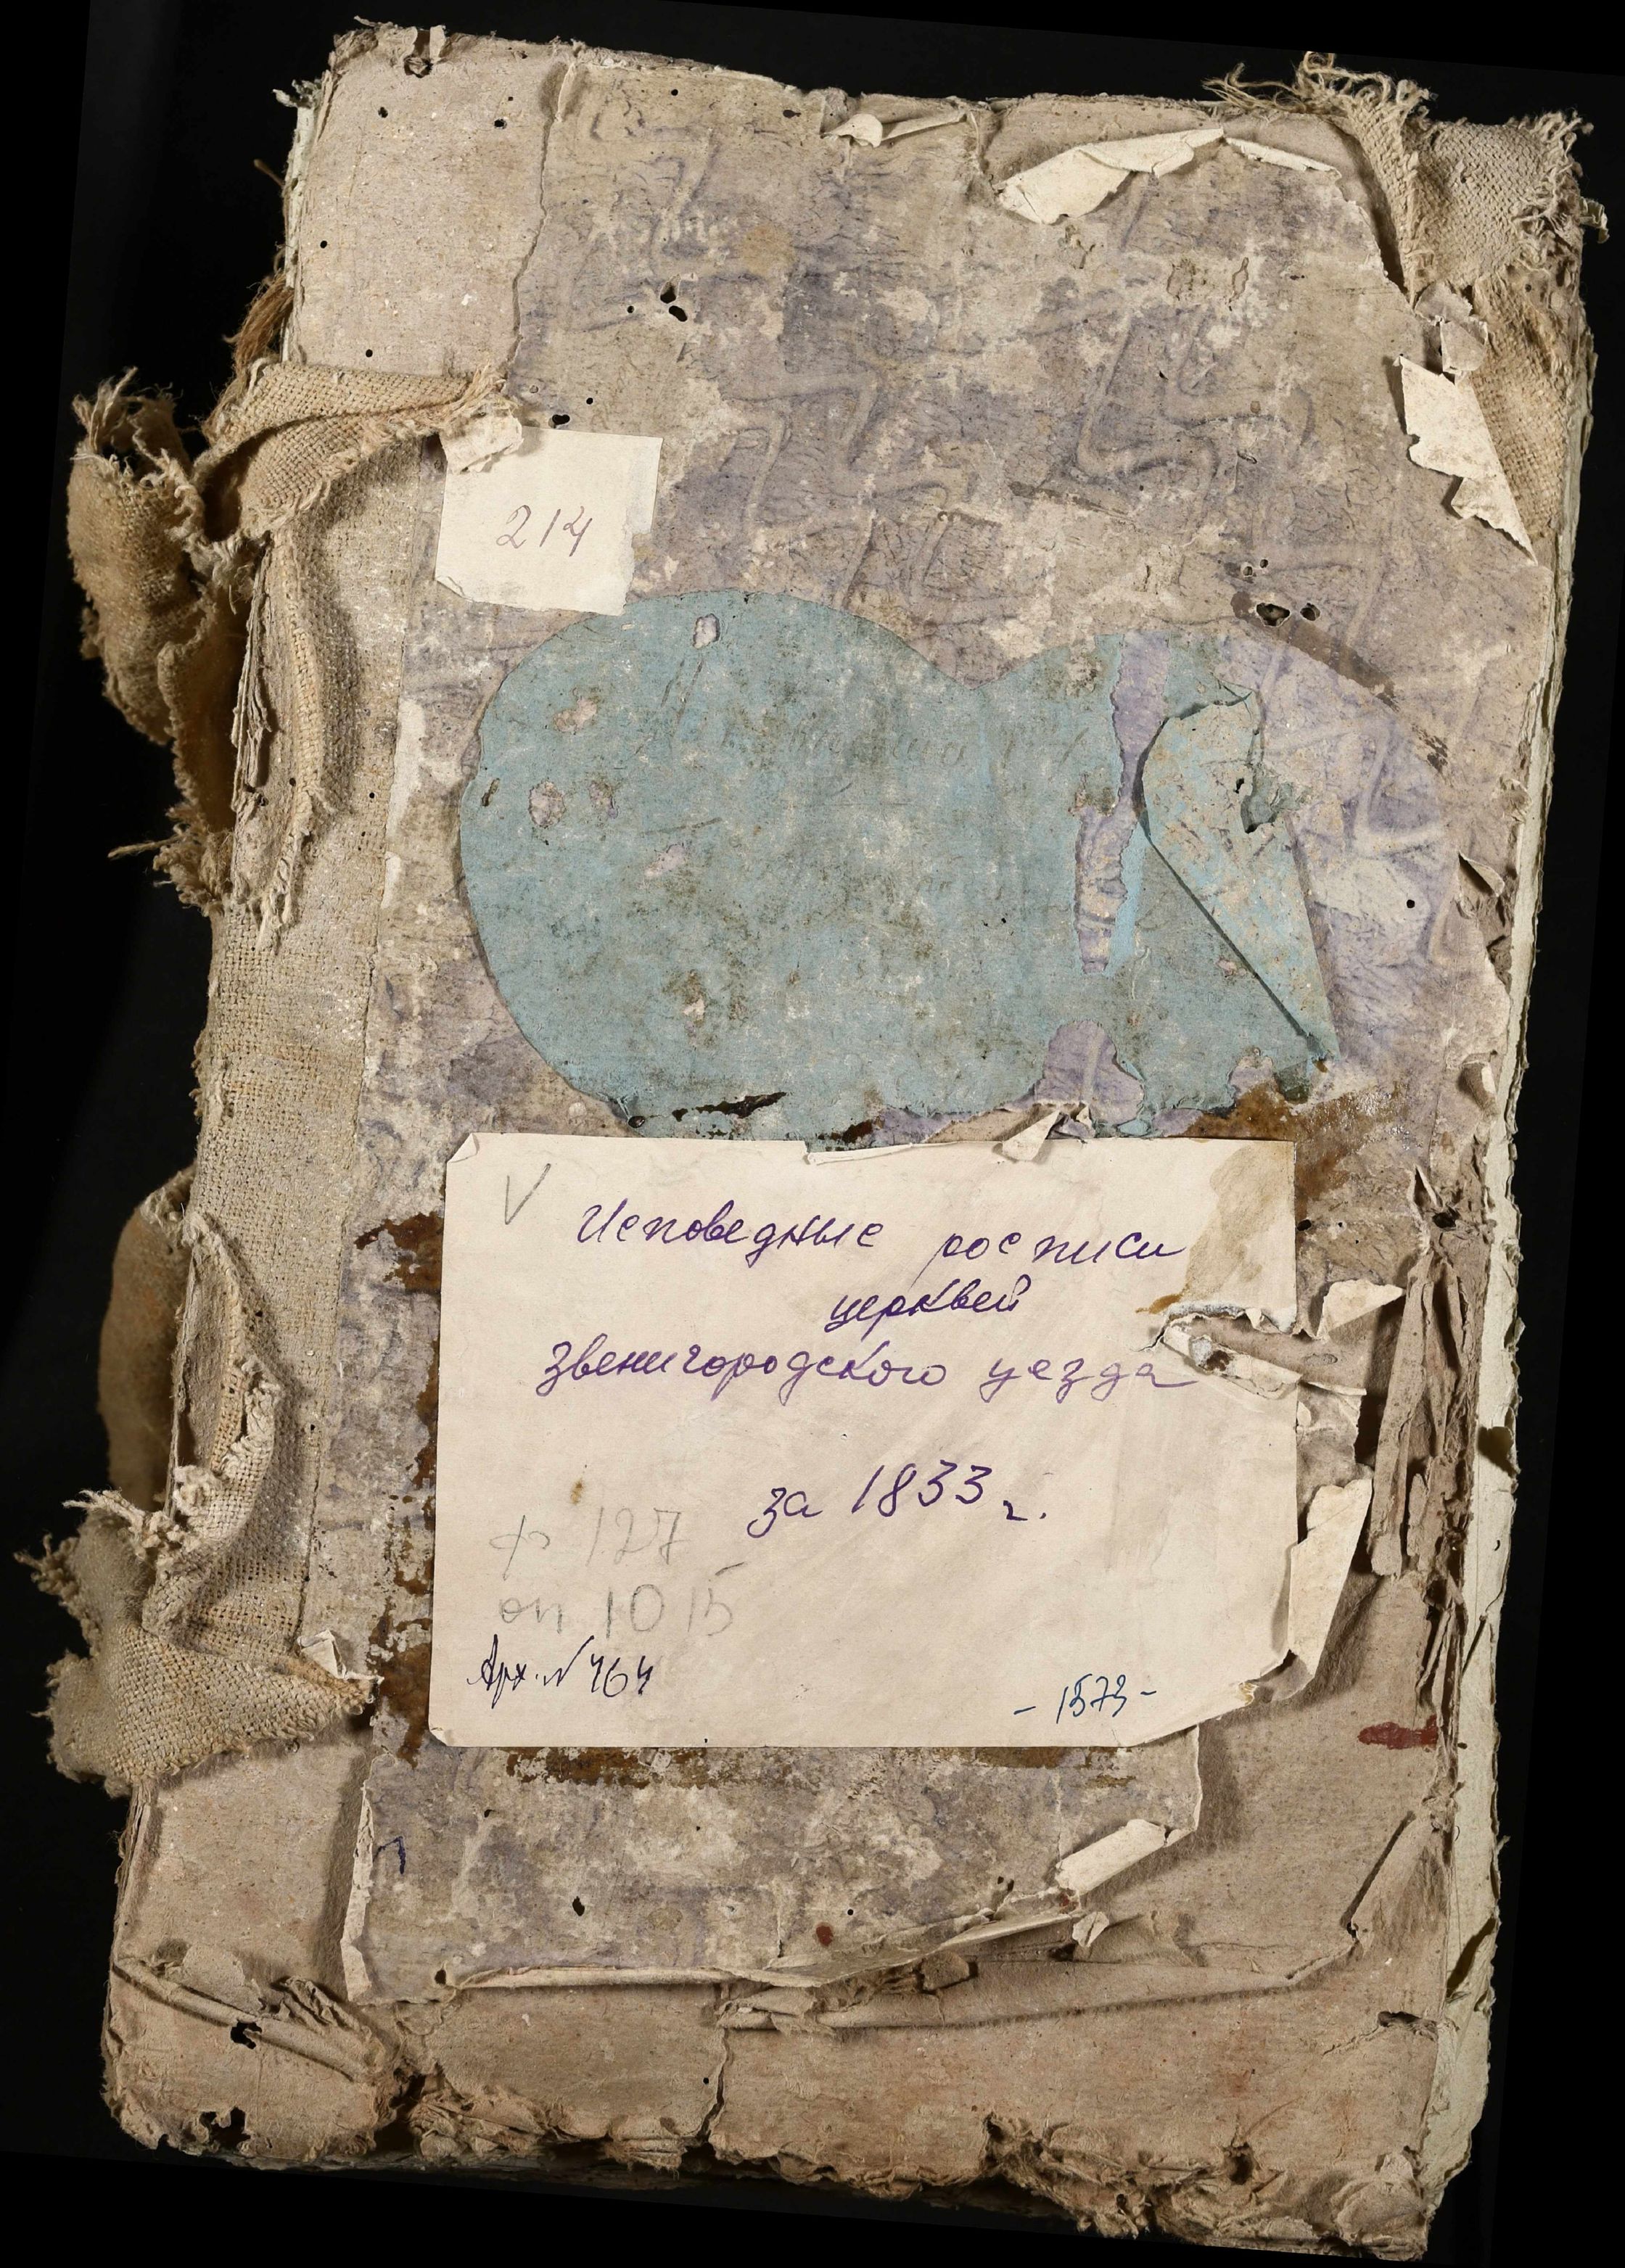 214
V
Исповедные росписи
церквей
Звенигородского уезда
за 1833 г.
ф 127
оп 1015
Арх. № 464
- 1573 -